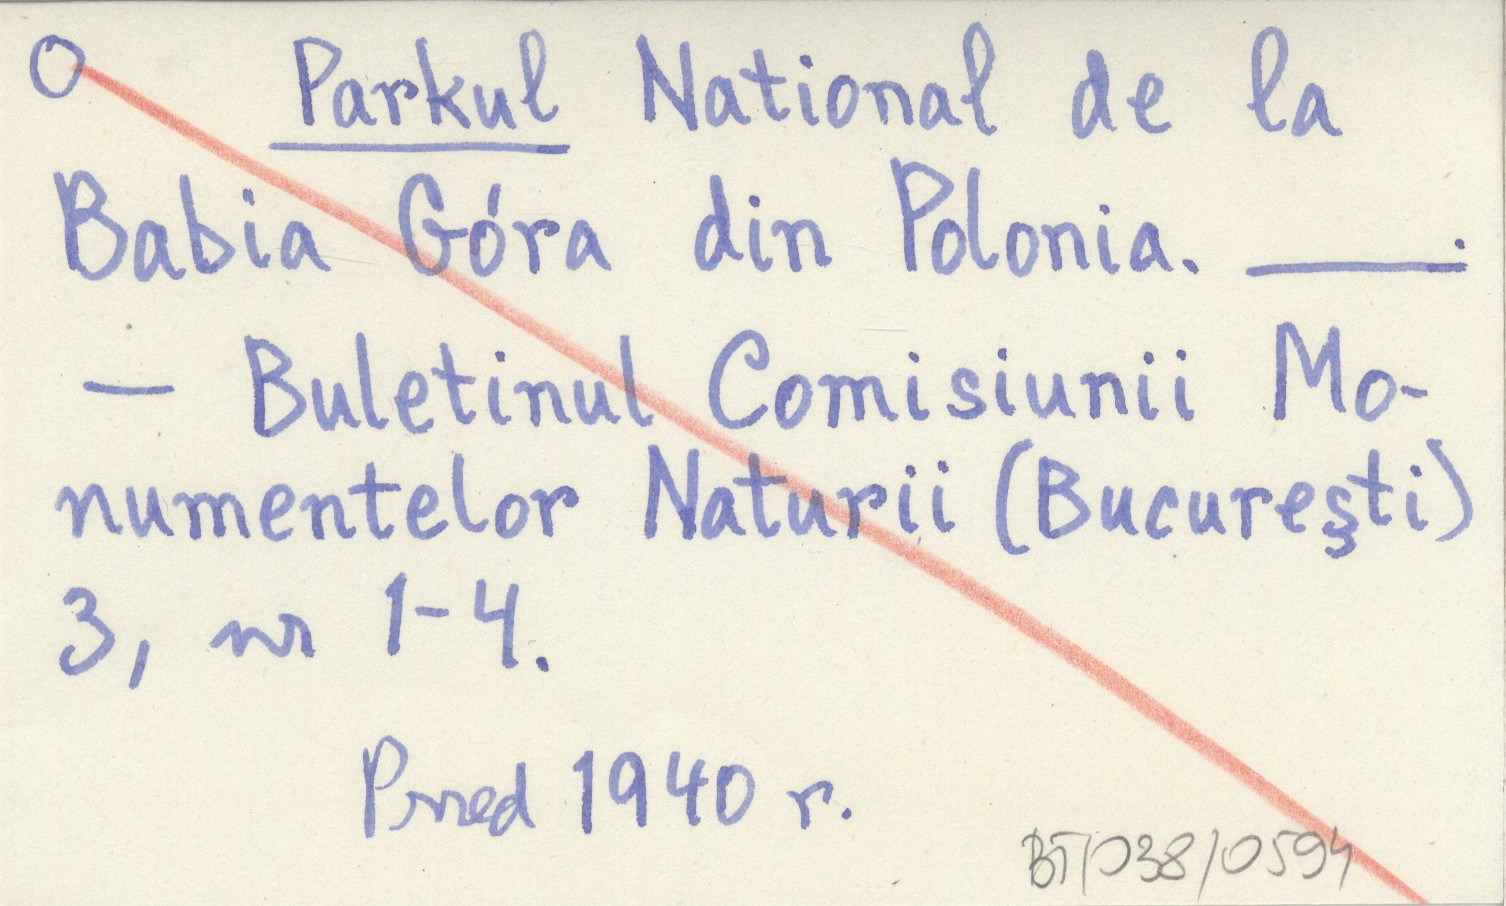 O Parkul National de la
Babia Góra din Polonia. ____.
— Buletinul Comisiunii Mo-
numentelor Naturii (Bucureşti)
3, nr 1-4.
Przed 1940 r.
BT/038/0594